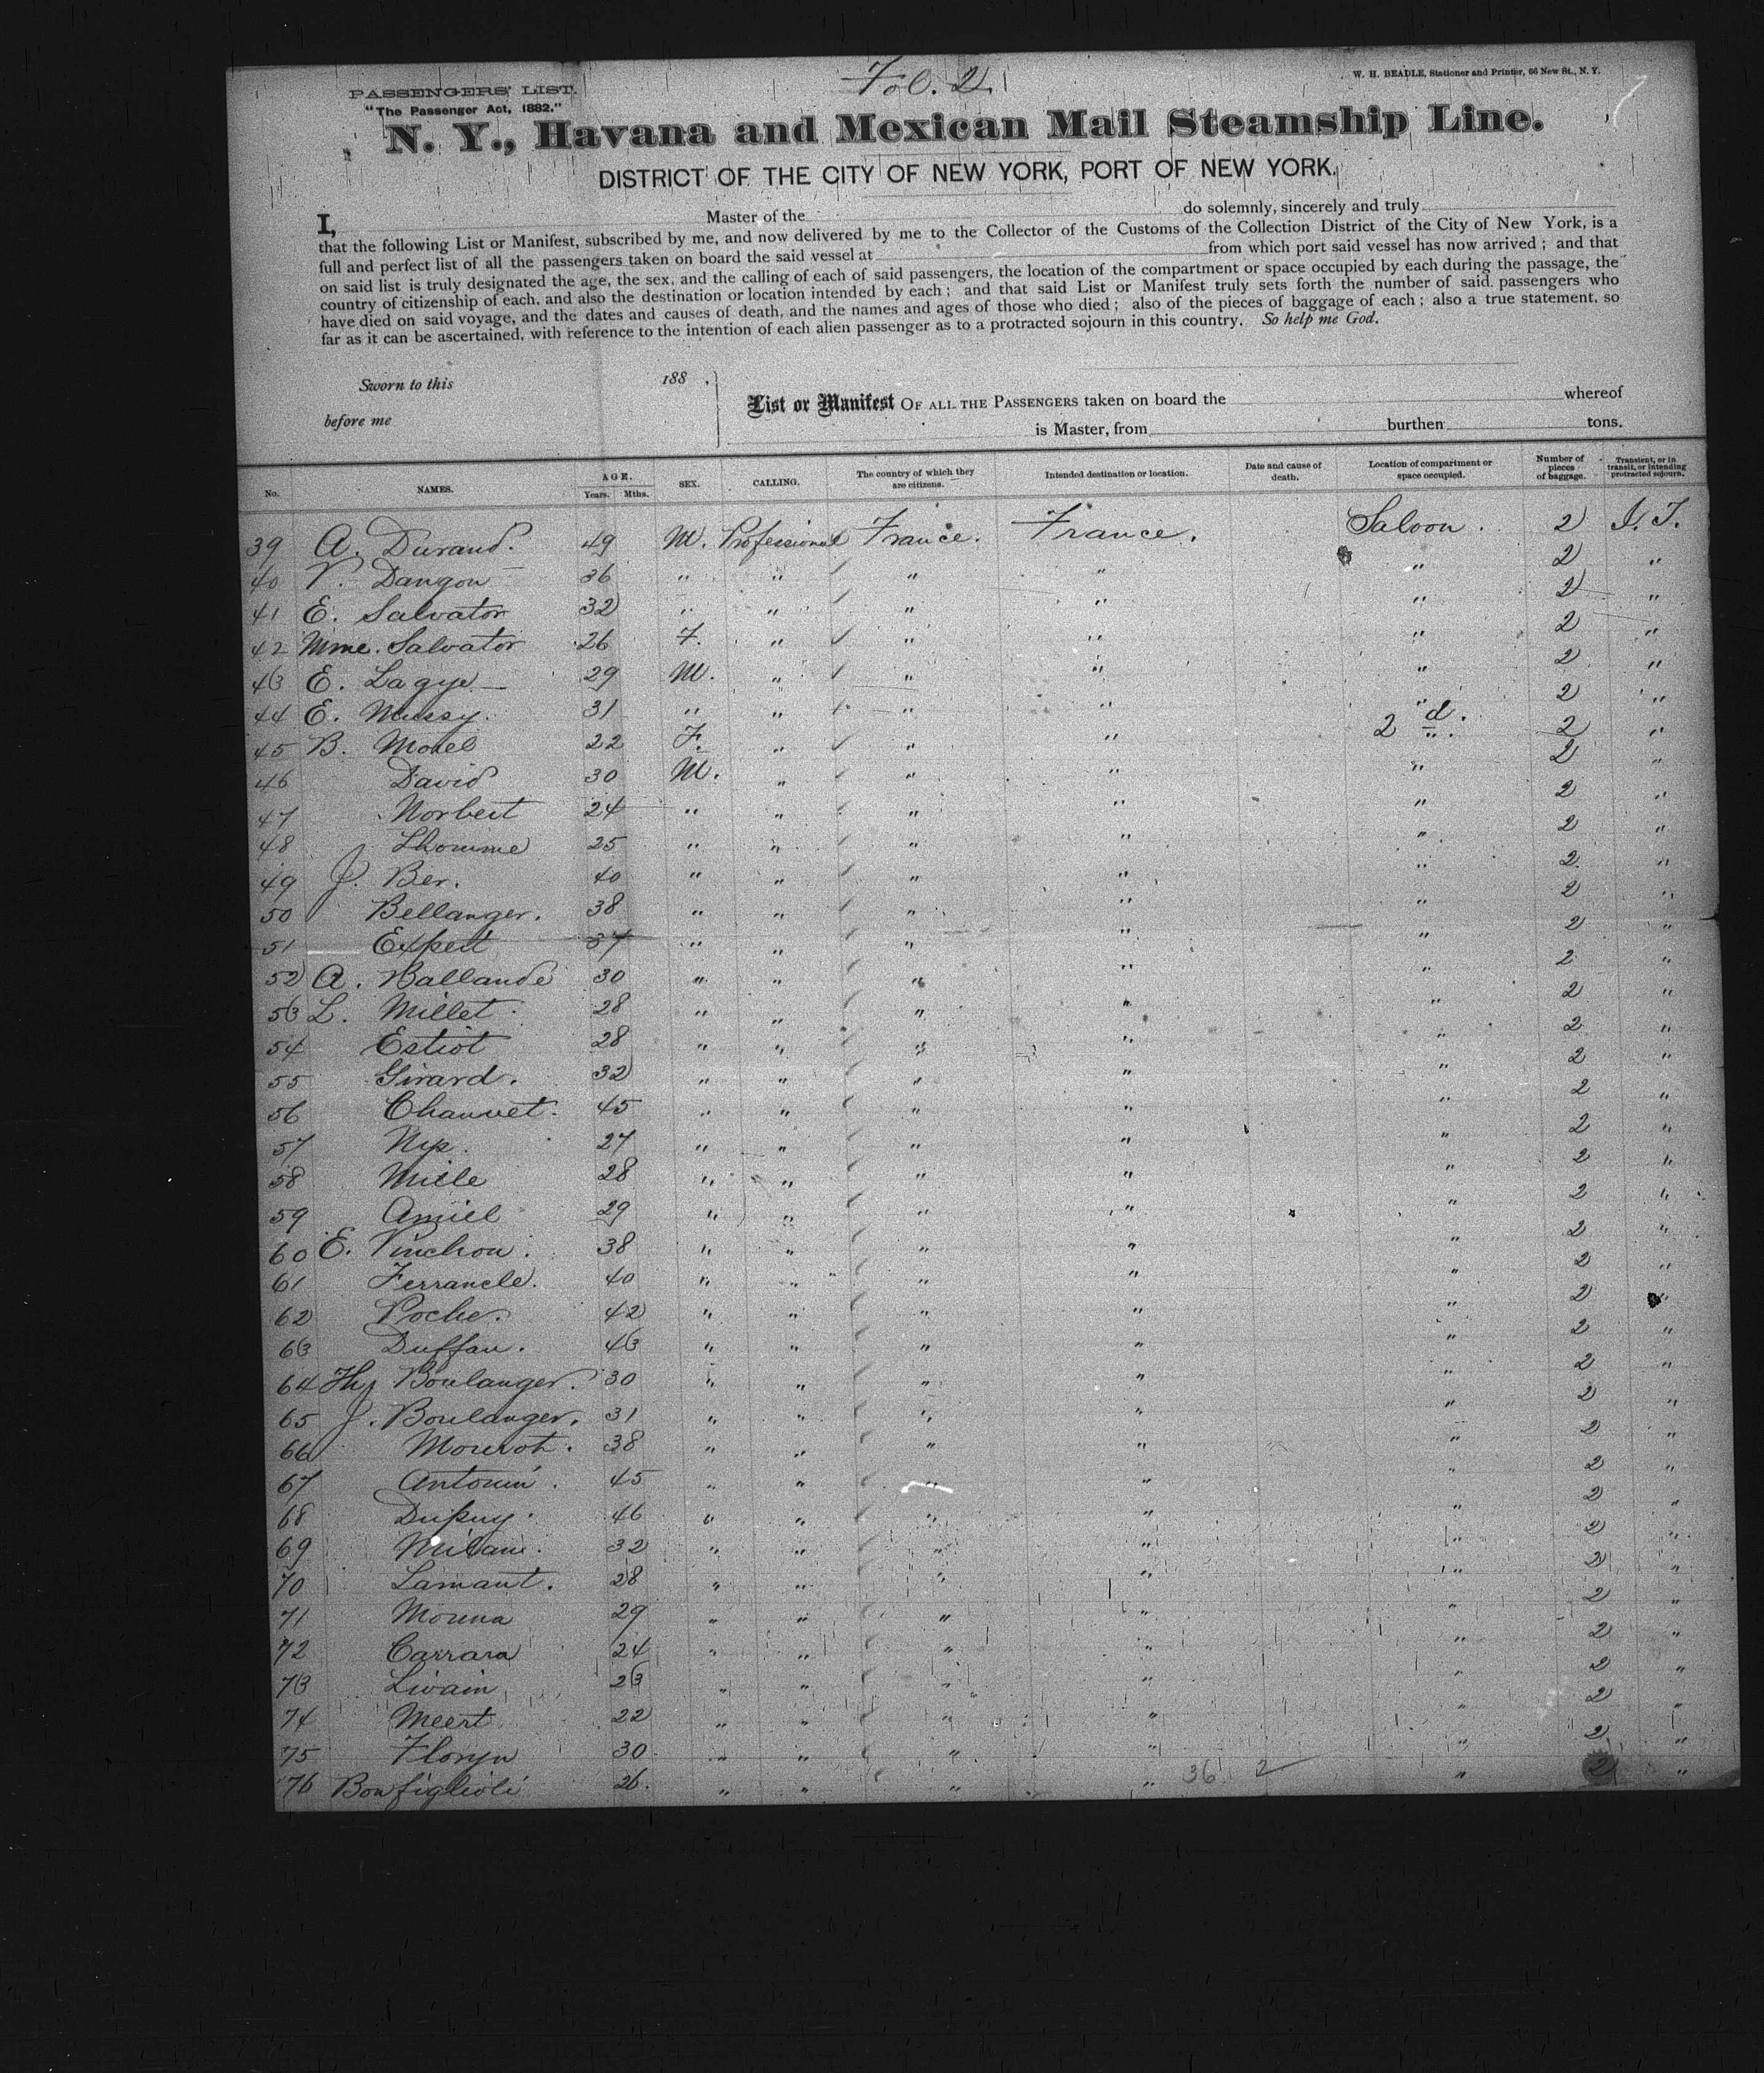 Fol. 2.
W. H. BEADLE, Stationer and Printer, 66 New St., N. Y.
PASSENGERS' LIST.
"The Passenger Act, 1882."
N. Y., Havana and Mexican Mail Steamship Line.
DISTRICT OF THE CITY OF NEW YORK, PORT OF NEW YORK.
I, Master of the do solemnly, sincerely and truly
that the following List or Manifest, subscribed by me, and now delivered by me to the Collector of the Customs of the Collection District of the City of New York, is a
full and perfect list of all the passengers taken on board the said vessel at from which port said vessel has now arrived; and that
on said list is truly designated the age, the sex, and the calling of each of said passengers, the location of the compartment or space occupied by each during the passage, the
country of citizenship of each, and also the destination or location intended by each; and that said List or Manifest truly sets forth the number of said passengers who
have died on said voyage, and the dates and causes of death, and the names and ages of those who died; also of the pieces of baggage of each; also a true statement, so
far as it can be ascertained, with reference to the intention of each alien passenger as to a protracted sojourn in this country. So help me God.
Sworn to this 188 .
before me
List or Manifest OF ALL THE PASSENGERS taken on board the whereof
is Master, from burthen tons.
No. NAMES. AGE. Years. Mths. SEX. CALLING. The country of which they are citizens. Intended destination or location. Date and cause of death. Location of compartment or space occupied. Number of pieces of baggage. Transient, or in transit, or intending protracted sojourn.
39 A. Durand. 49 M. Professional France. France. Saloon. 2 I. T.
40 V. Dangon 36 " " " " " 2 "
41 E. Salvator 32 " " " " " 2 "
42 Mme. Salvator 26 F. " " " " 2 "
43 E. Lagye 29 M. " " " " 2 "
44 E. Mussy. 31 " " " " " 2 "
45 B. Morel 22 F. " " " 2d. 2 "
46 David 30 M. " " " " 2 "
47 Norbert 24 " " " " " 2 "
48 Lhomme 25 " " " " " 2 "
49 J. Ber. 40 " " " " " 2 "
50 Bellanger. 38 " " " " " 2 "
51 Expert 37 " " " " " 2 "
52 A. Ballande 30 " " " " " 2 "
53 L. Millet 28 " " " " " 2 "
54 Estiot 28 " " " " " 2 "
55 Girard. 32 " " " " " 2 "
56 Chauvet. 45 " " " " " 2 "
57 27 " " " " " 2 "
58 Mille 28 " " " " " 2 "
59 Amiel 29 " " " " " 2 "
60 E. Vinchon. 38 " " " " " 2 "
61 40 " " " " " 2 "
62 Poche. 42 " " " " " 2 "
63 Duffau. 43 " " " " " 2 "
64 Hy Boulanger. 30 " " " " " 2 "
65 J. Boulanger. 31 " " " " " 2 "
66 Mourot. 38 " " " " " 2 "
67 Antonin. 45 " " " " " 2 "
68 Dupuy. 46 " " " " " 2 "
69 32 " " " " " 2 "
70 Lamant. 28 " " " " " 2 "
71 29 " " " " " 2 "
72 Carrara 24 " " " " " 2 "
73 Livain 23 " " " " " 2 "
74 Meert 22 " " " " " 2 "
75 Floryn 30 " " " " " 2 "
76 Bonfiglioli 26. " " " " 36 2 " 2 "